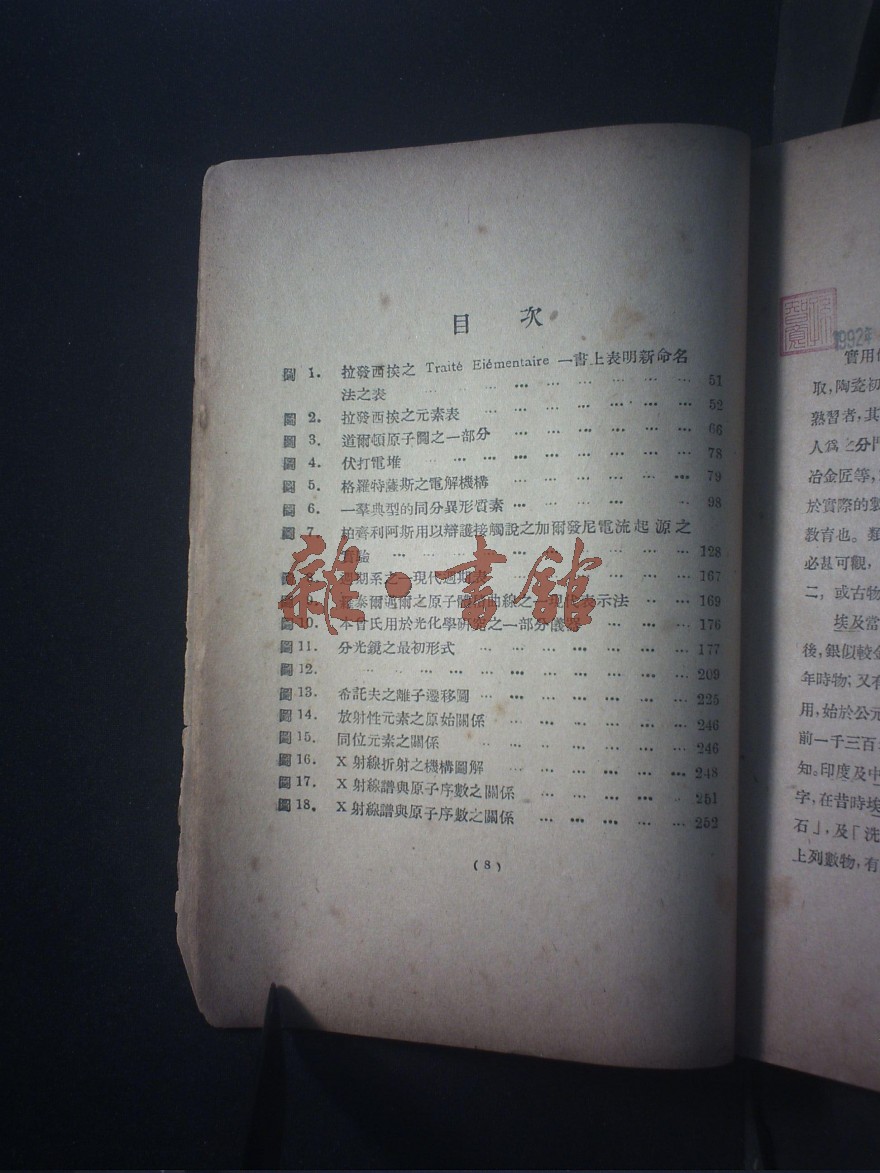 目 次
圖 1. 拉發西埃之 Traité Elémentaire 一書上表明新命名
法之表 ... ... ... ... ... ... 51
圖 2. 拉發西埃之元素表 ... ... ... ... ... ... 52
圖 3. 道爾頓原子團之一部分 ... ... ... ... ... 66
圖 4. 伏打電堆 ... ... ... ... ... ... ... 78
圖 5. 格羅特薩斯之電解機構 ... ... ... ... ... 79
圖 6. 一羣典型的同分異形質素 ... ... ... ... ... 98
圖 7. 柏齊利阿斯用以辯護接觸說之加爾發尼電流起源之
... ... ... ... ... ... 128
圖 8. 週期系之一現代週期表 ... ... ... ... 167
圖 9. 泰爾邁爾之原子體積曲線之一現代表示法 ... ... 169
圖10. 本曾氏用於光化學研究之一部分儀器 ... ... 176
圖11. 分光鏡之最初形式 ... ... ... ... ... ... 177
圖12. ... ... ... ... ... ... ... ... 209
圖13. 希託夫之離子遷移圖 ... ... ... ... ... ... 225
圖14. 放射性元素之原始關係 ... ... ... ... ... 246
圖15. 同位元素之關係 ... ... ... ... ... ... 246
圖16. X 射線折射之機構圖解 ... ... ... ... ... 248
圖17. X 射線譜與原子序數之關係 ... ... ... ... 251
圖18. X 射線譜與原子序數之關係 ... ... ... ... 252
(8)
雜·書館
1992年
實用
取,陶瓷初
熟習者,其
人爲之分門
冶金匠等,
於實際的製
教育也。類
必甚可觀,
二,或古物
埃及當
後,銀似較金
年時物;又有
用,始於公元
前一千三百
知。印度及中
字,在昔時埃
石」,及「洗
上列數物,有